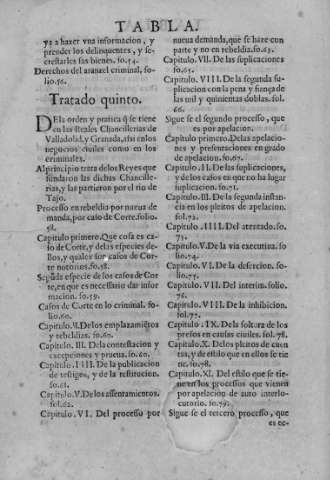 TABLA.
ya a hazer vna informacion, y
prender los delinquentes, y se-
crestarles sus bienes. fo.54.
Derechos del aranzel criminal, fo-
lio.56.
Tratado quinto.
DEla orden y pratica q̃ se tiene
en las Reales Chancillerias de
Valladolid, y Granada, assi en los
negocios ciuiles como en los
criminales.
Al principio trata de los Reyes que
fundaron las dichas Chancille-
rias, y las partieron por el rio de
Tajo.
Processo en rebeldia por nueua de
manda, por caso de Corte. folio.
58.
Capitulo primero. Que cosa es ca-
so de Corte, y de las especies de-
llos, y quales son casos de Cor-
te notorios. fo.58.
Segũda especie de los casos de Cor
te, en que es necessario dar infor
macion. fo.59.
Casos de Corte en lo criminal. fo-
lio.60.
Capitulo.II. De los emplazamiẽtos
y rebeldias. fo.60.
Capitulo.III. De la contestacion y
excepciones y prueua. fo.60.
Capitulo.IIII. De la publicacion
de testigos, y de la restitucion.
fo.61.
Capitulo.V. De los assentamientos.
fol.62.
Capitulo.VI. Del processo por
nueua demanda, que se haze con
parte y no en rebeldia. fo.63.
Capitulo.VII. De las suplicaciones
fo.65.
Capitulo.VIII. De la segunda su-
plicacion con la pena y fiança de
las mil y quinientas doblas. fol.
66.
Sigue se el segundo processo, que
es por apelacion.
Capitulo primero. De las apelacio-
nes y presentaciones en grado
de apelacion. fo.67.
Capitulo.II. De las suplicaciones,
y de los casos en que no ha lugar
suplicacion. fo.71.
Capitulo.III. De la segunda instan-
cia en los pleitos de apelacion.
fol.72.
Capitulo.IIII. Del atentado. fo.
73.
Capitulo.V. De la via executiua. fo
lio.74.
Capitulo.VI. De la desercion. fo-
lio.75.
Capitulo.VII. Del interim. folio.
76.
Capitulo.VIII. De la inhibicion.
fol.77.
Capitulo.IX. De la soltura de los
presos en causas ciuiles. fol.78.
Capitulo.X. De los pleitos de cuen-
tas, y de estilo que en ellos se tie
ne. fo.78.
Capitulo.XI. Del estilo que se tie
ne en los processos que vienen
por apelacion de auto interlo-
cutorio. fo.79.
Sigue se el tercero processo, que
es ec-